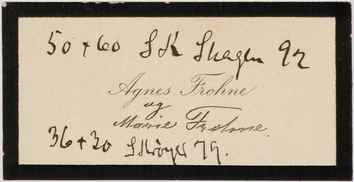 50 + 60 SK Skagen 92
Agnes Frohne
og
Marie Frohne.
36 + 30 SKröyer 79.